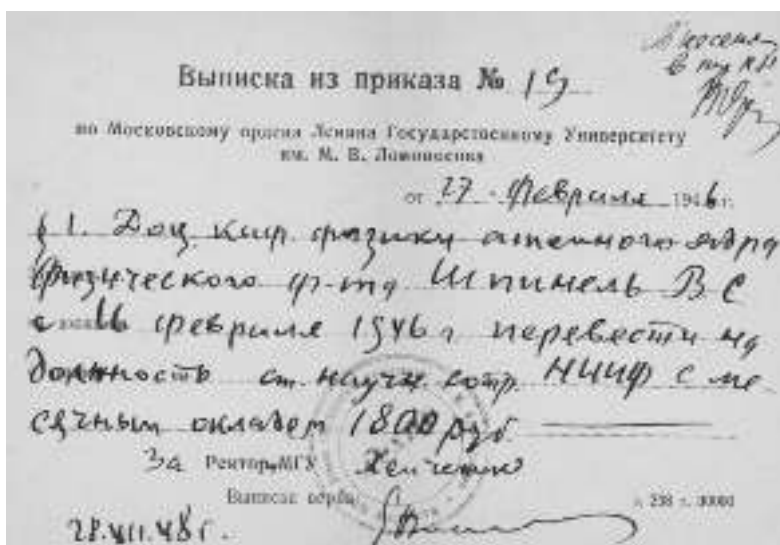 Выписка из приказа № 19
по Московскому ордена Ленина Государственному Университету
им. М. В. Ломоносова
от 27 февраля 1946 г.
§ 1. Доц. каф. физики атомного ядра
физического ф-та Шпинель В С
с 16 февраля 1946 г перевести на
должность ст. научн. сотр. НИИФ с ме
сячным окладом 1800 руб
За Ректор МГУ
Выписка верна
28.VII.48 г.